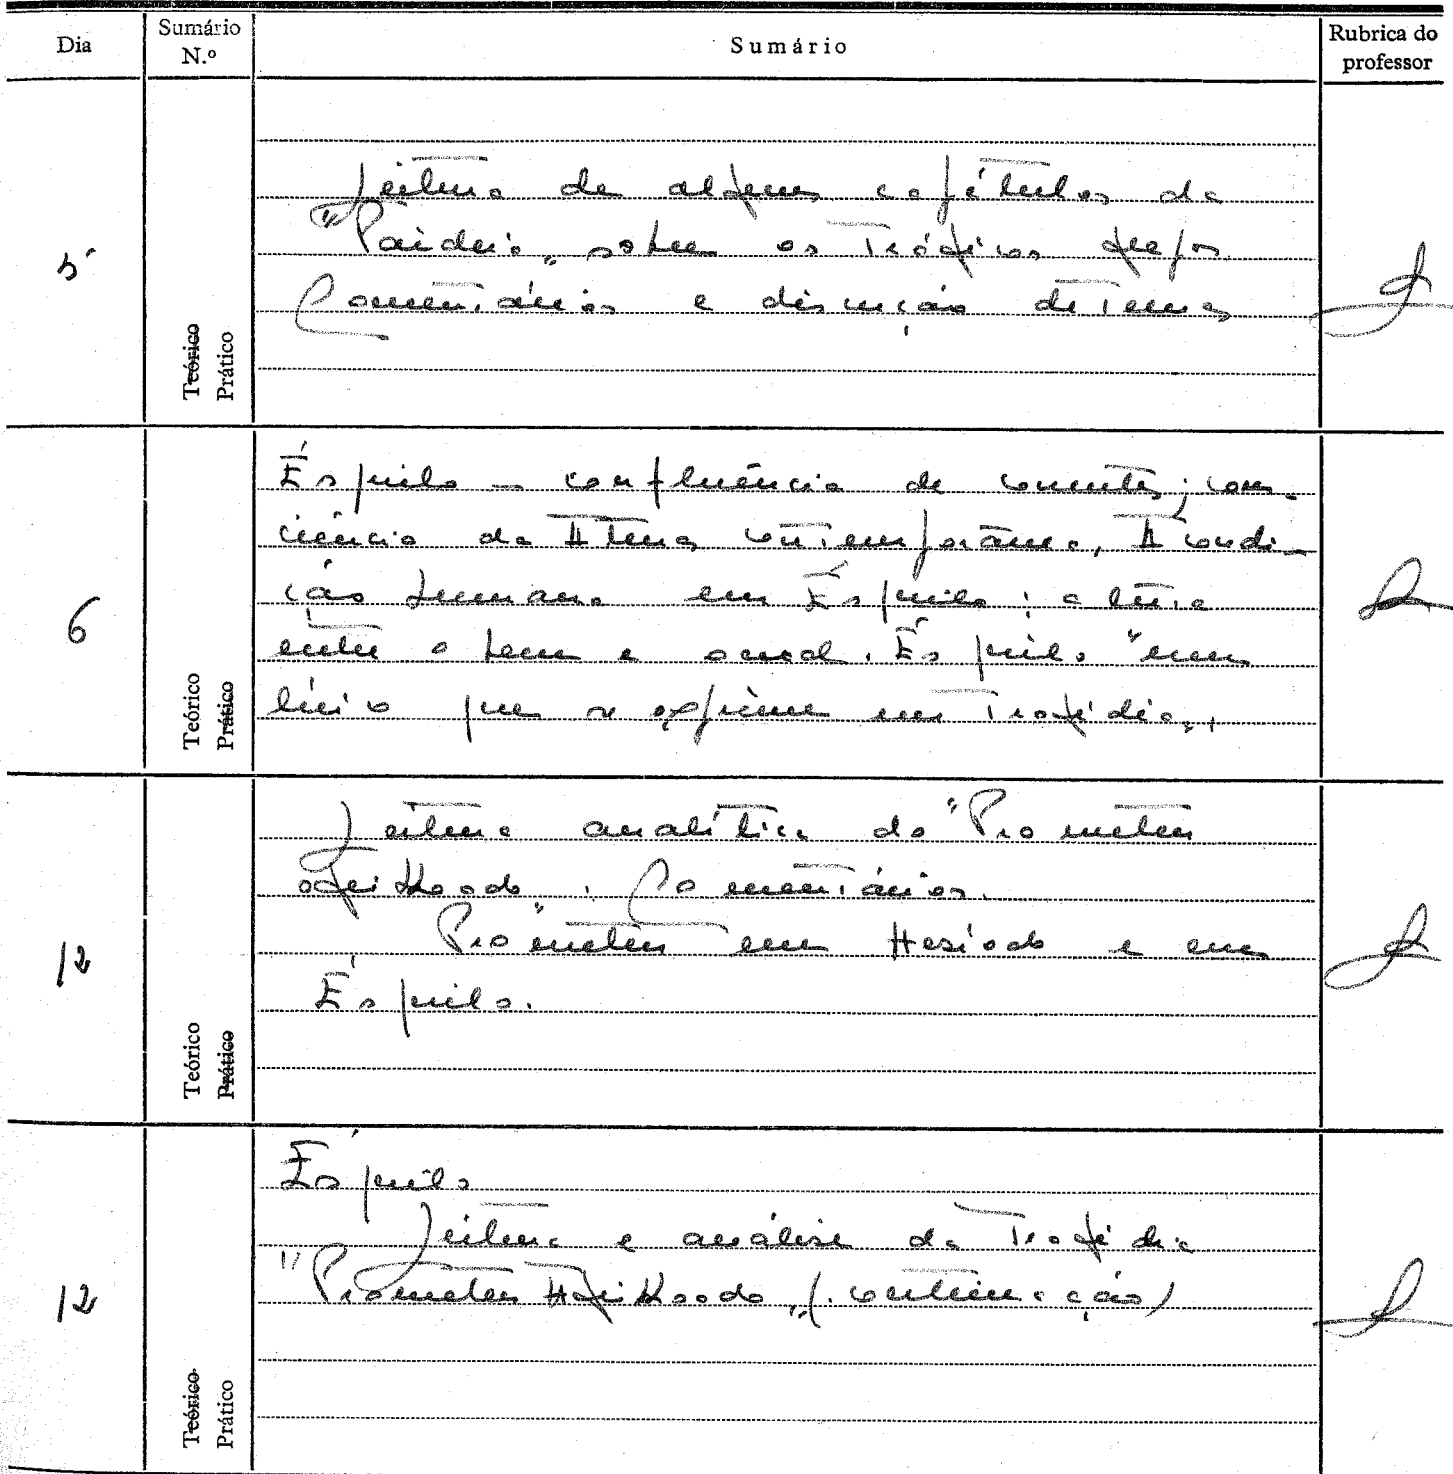 Dia
Sumário N.º
Sumário
Rubrica do professor
5
Teórico
Prático
Leitura de alguns capítulos da
"Paideia" sobre os Trágicos gregos.
Comentários e discussão de Temas
6
Teórico
Prático
Ésquilo – confluência de correntes; cons-
ciência da Atenas contemporânea. A condi-
ção humana em Ésquilo; a luta
entre o bem e o mal. Ésquilo "um
lírico que se exprime em Tragédia".
12
Teórico
Prático
Leitura analítica do "Prometeu
agrilhoado". Comentários.
Prometeu em Hesíodo e em
Ésquilo.
12
Teórico
Prático
Ésquilo
Leitura e análise da Tragédia
"Prometeu Agrilhoado" (continuação)